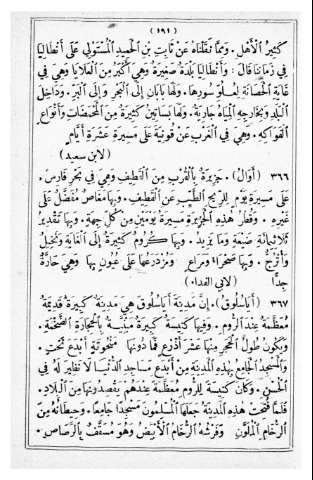 (١٩١)
كَثِيرُ الْأَهْلِ. وَمِمَّا نَقَلْنَاهُ عَنْ ثَابِتِ بْنِ الْحَمِيدِ الْمُسْتَوْلِي عَلَى أَنْطَالِيَا
فِي زَمَانِنَا قَالَ: وَأَنْطَالِيَا بَلْدَةٌ صَغِيرَةٌ وَهِيَ أَكْبَرُ مِنَ الْعَلَايَا وَهِيَ فِي
غَايَةِ الْحَصَانَةِ لِعُلُوِّ سُورِهَا. وَلَهَا بَابَانِ إِلَى الْبَحْرِ وَإِلَى الْبَرِّ. وَدَاخِلَ
الْبَلَدِ وَبِخَارِجِهِ الْمِيَاهُ جَارِيَةٌ. وَلَهَا بَسَاتِينُ كَثِيرَةٌ مِنَ الْمُحَمَّضَاتِ وَأَنْوَاعِ
الْفَوَاكِهِ. وَهِيَ فِي الْغَرْبِ عَنْ قُونِيَةَ عَلَى مَسِيرَةِ عَشَرَةِ أَيَّامٍ
(لابن سعيد)
٣٦٦ (أُوَالُ). جَزِيرَةٌ بِالْقُرْبِ مِنَ الْقَطِيفِ وَهِيَ فِي بَحْرِ فَارِسَ.
عَلَى مَسِيرَةِ يَوْمٍ لِلرِّيحِ الطَّيِّبِ عَنِ الْقَطِيفِ. وَبِهَا مَغَاصٌ مُفَضَّلٌ عَلَى
غَيْرِهِ. وَقُطْرُ هٰذِهِ الْجَزِيرَةِ مَسِيرَةُ يَوْمَيْنِ مِنْ كُلِّ جِهَةٍ. وَبِهَا تَقْدِيرُ
ثَلَاثِمِائَةِ ضَيْعَةٍ وَمَا يَزِيدُ. وَبِهَا كُرُومٌ كَثِيرَةٌ إِلَى الْغَايَةِ وَنَخِيلٌ
وَأُتْرُجٌّ. وَبِهَا صَحْرَاءُ وَمَرَاعٍ وَمُزْدَرَعُهَا عَلَى عُيُونٍ بِهَا وَهِيَ حَارَّةٌ
جِدًّا (لابي الفداء)
٣٦٧ (أَيَاسُلُوقُ). إِنَّ مَدِينَةَ أَيَاسُلُوقَ هِيَ مَدِينَةٌ كَبِيرَةٌ قَدِيمَةٌ
مُعَظَّمَةٌ عِنْدَ الرُّومِ. وَفِيهَا كَنِيسَةٌ كَبِيرَةٌ مَبْنِيَّةٌ بِالْحِجَارَةِ الضَّخْمَةِ.
وَيَكُونُ طُولُ الْحَجَرِ مِنْهَا عَشَرَ أَذْرُعٍ فَمَا دُونَهَا مَنْحُوتَةً أَبْدَعَ نَحْتٍ.
وَالْمَسْجِدُ الْجَامِعُ بِهٰذِهِ الْمَدِينَةِ مِنْ أَبْدَعِ مَسَاجِدِ الدُّنْيَا لَا نَظِيرَ لَهُ فِي
الْحُسْنِ. وَكَانَ كَنِيسَةً لِلرُّومِ مُعَظَّمَةً عِنْدَهُمْ يَقْصِدُونَهَا مِنَ الْبِلَادِ.
فَلَمَّا فُتِحَتْ هٰذِهِ الْمَدِينَةُ جَعَلَهَا الْمُسْلِمُونَ مَسْجِدًا جَامِعًا. وَحِيطَانُهُ مِنَ
الرُّخَامِ الْمُلَوَّنِ وَفَرْشُهُ الرُّخَامُ الْأَبْيَضُ وَهُوَ مُسَقَّفٌ بِالرَّصَاصِ.